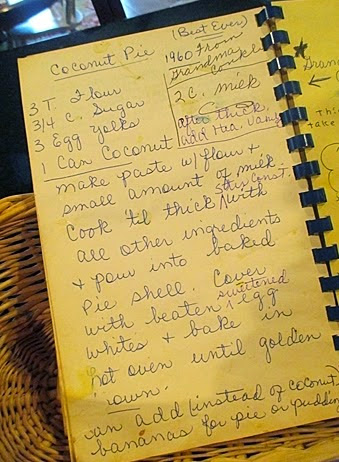 Coconut Pie
(Best Ever)
1960 From
Grandma
Conkle
3 T. Flour
3/4 c. Sugar
3 Egg yolks
1 Can Coconut
2 C. milk
after thick,
add
make paste w/ flour &
small amount of milk
Cook 'til thick, with
Stir Const.
all other ingredients
& pour into baked
Pie shell. Cover
with beaten egg
sweetened
whites & bake in
hot oven until golden
an add (instead of coconut)
bananas for pie or pudding
Gran
Thi
take